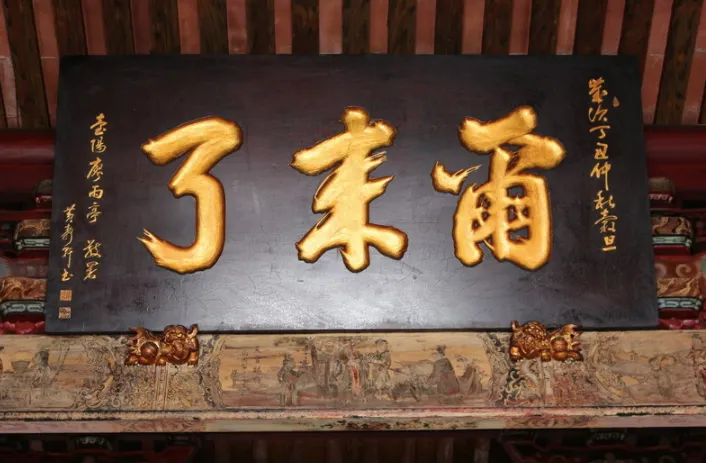 歲次丁丑仲秋穀旦
爾來了
壺陽廖雨亭 敬獻
黃壽祈書